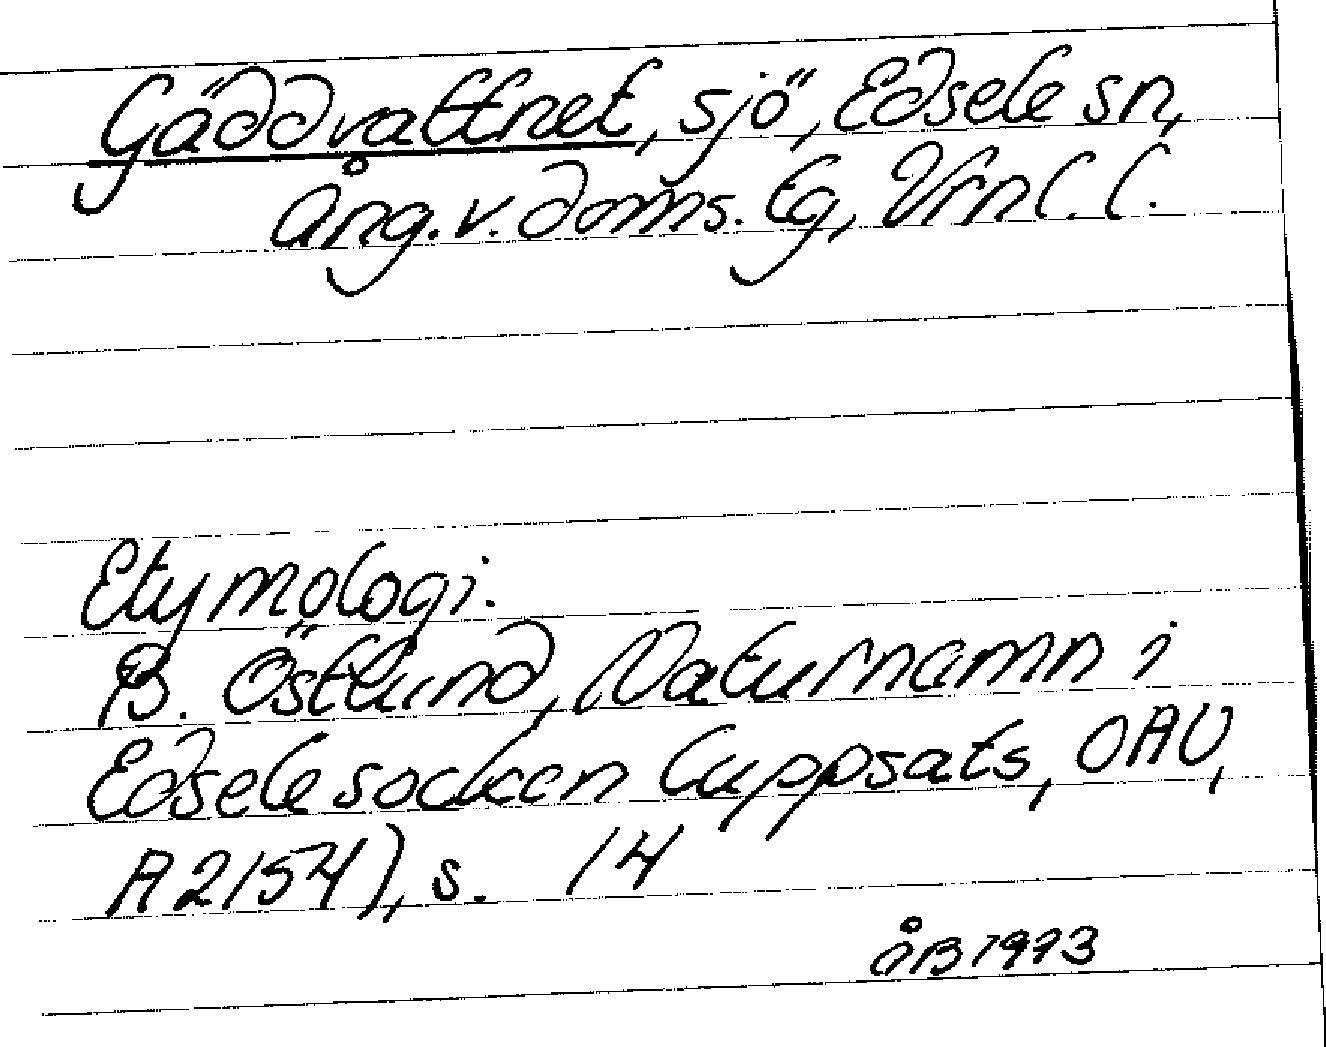 Gäddvattnet, sjö, Edsele sn,
Ång. v. doms. tg, Vrnl. l.
Etymologi.
B. Östlund, Naturnamn i
Edsele socken (uppsats, OAU,
A2154), s. 14
ÅB 1993